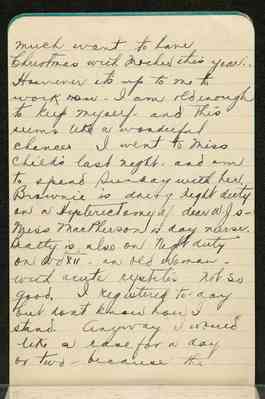 much want to have
Christmas with Mother this year.
However its up to me to
work now - I am old enough
to keep myself - and this
seems like a wonderful
chance. I went to Miss
Childs last night - and am
to spend Sunday with her.
Brownie is doing night duty
on a Hysterectomy
Miss MacPherson is day nurse.
Beatty is also on Night duty
on an old woman -
with acute cystitis not so
good. I registered to day
but dont know how I
stand. Anyway I would
like a case for a day
or two - because the